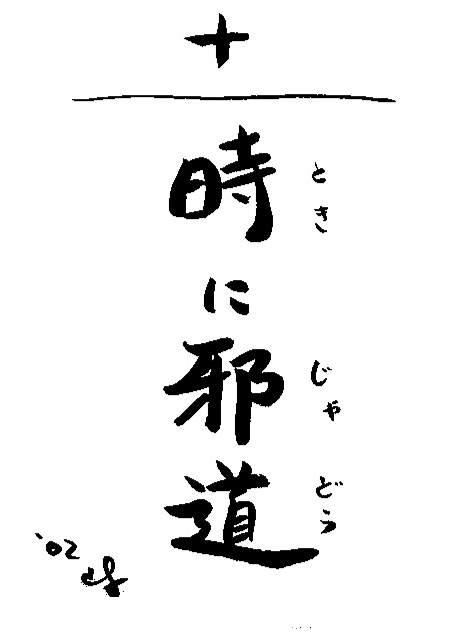 十
時に邪道
とき じゃどう
'02